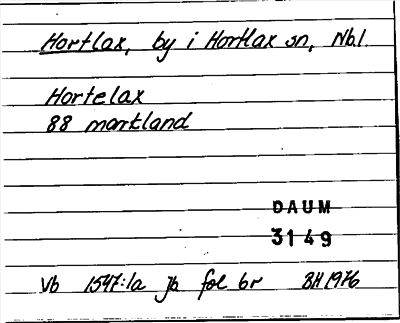 Hortlax, by i Hortlax sn, Nb.l.
Hortelax
88 markland
DAUM
3149
Vb 1547:1a jb fol br BH 1976